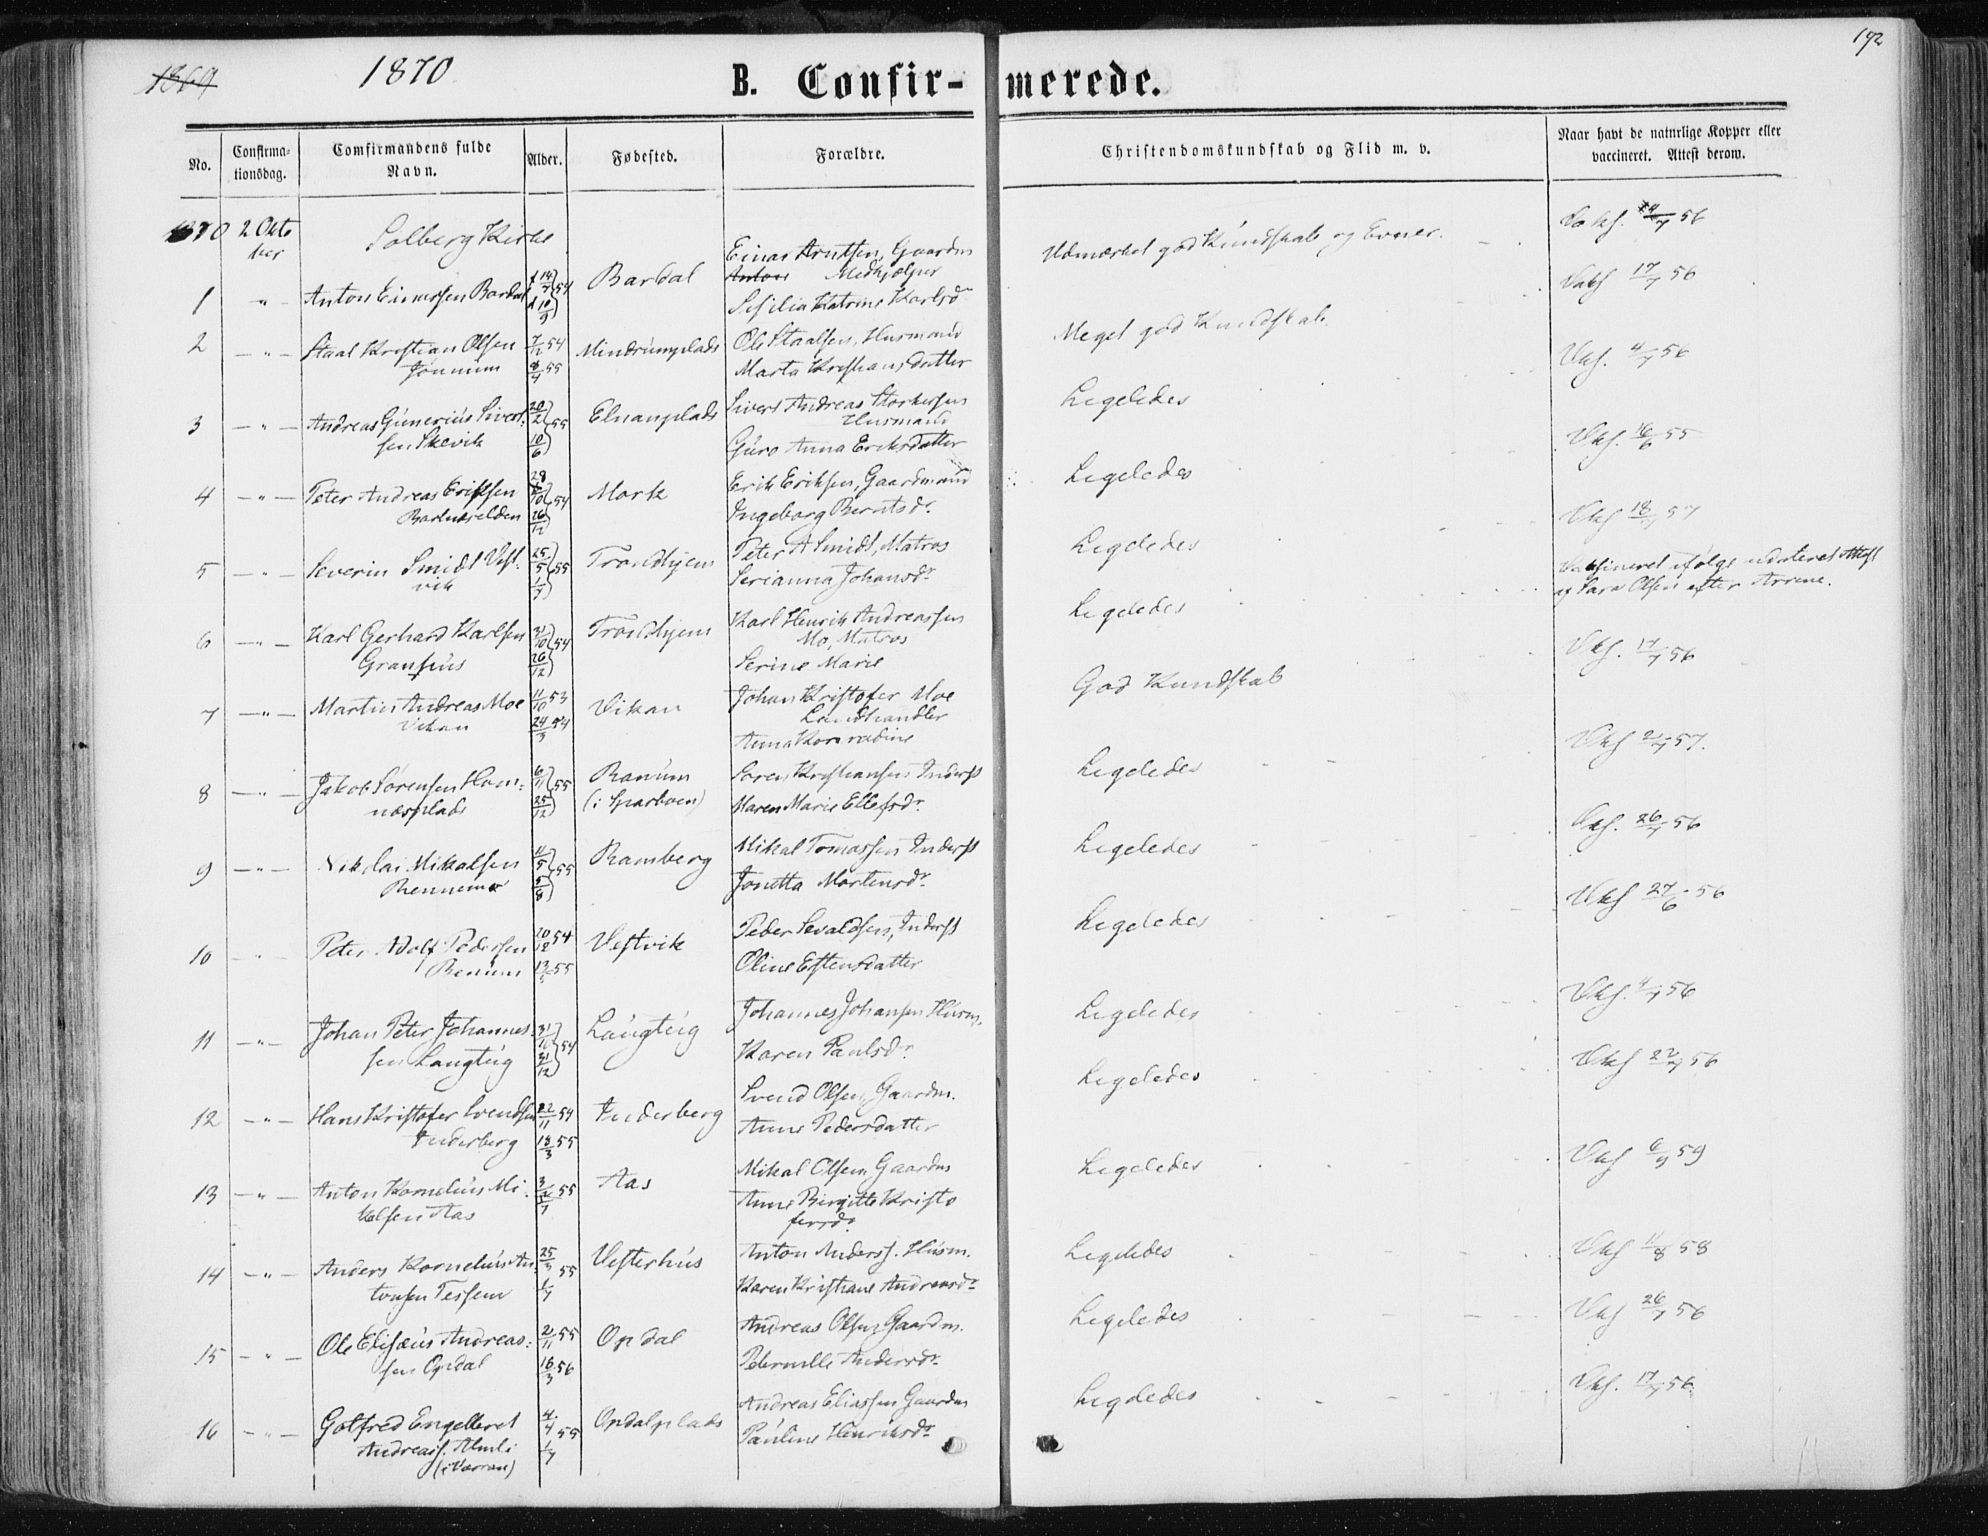 192
1869
1870
B. Confir-merede.
No.
Confirma-
tionsdag.
Comfirmandens fulde
Navn.
Alder.
Fødested.
Forældre.
Christendomskundskab og Flid m. v.
Naar havt de naturlige Kopper eller
vaccineret. Attest derom.
1870 2 Okto
ber
Solberg Kirke
1 " Anton Einarsen Bardal f 14/7 54 d 10/9 Bardal
Einar Arntsen, Gaardm
Anton Medhjælper
Sesilia Katrine Karlsdr
Udmærket god Kundskab og Evner.
17/7 56
2 — " — Staal Kristian Olsen 7/12 54 Mindrumplads Ole Staalsen, Husmand
8/4 55 Marta Kristiansdatter
Meget god Kundskab
Vaks. 17/7 56
3 — " — Andreas Gunerius Sivert-
sen Skevik
20/2 55 10/6
Elnanplads
Sivert Andreas Storkersen
Husmand
Guro Anna Eriksdatter
Ligeledes
Vks. 4/7 56
4 — " — Peter Andreas Eriksen
28/10 54 26/12
Mork
Erik Eriksen, Gaardmand
Ingeborg Berntsdr.
Ligeledes
Vks. 16/6 55
5 — " — Severin Smidt Vest-
vik
25/5 55 1/7
Trondhjem
Peter A Smidt, Matros
Serianna Johansdr
Ligeledes
Vks 18/7 57
6 — " — Karl Gerhard Karlsen
31/10 54 26/12
Trondhjem
Karl Henrik Andreassen
Mo, Matros
Serine Marie
Ligeledes
Vaksineret ifølge udateret Attest
af Lars Olsen efter Arrene.
7 — " — Martin Andreas Moe
Vikan
11/10 53
24/3 54
Vikan
Johan Kristofer Moe
Landhandler
Anna Konradine
God Kundskab
Vks. 17/7 56
8 — " — Jakob Sørensen Hom-
nesplads
6/11 55 25/12
Ranum
(i Sparboen)
Søren Kristiansen Inderst
Maren Marie Ellefsdr.
Ligeledes
Vks 2/7 57.
9 — " — Nikolai Mikalsen
Rennema
11/5 55 5/8
Ramberg
Mikal Tomassen Inderst
Jonetta Martinsdr.
Ligeledes
Vks. 26/7 56
10 — " — Peter Adolf Pedersen
Renum
10/12 54
Vestvik
Peder Sevaldsen, Inderst
Oline Estensdatter
Ligeledes
Vks 27/6 56
11 — " — Johan Peter Johannes-
sen Langteig
31/10 54 31/12
Langteig
Johannes Johansen Husm.
Karen Paulsdr.
Ligeledes
Vks. 4/7 56
12 — " — Hans Kristofer Svendsen
Inderberg
22/11 54
18/3 55
Inderberg
Svend Olsen, Gaardm.
Anne Pedersdatter
Ligeledes
Vks 22/7 56
13 — " — Anton Kornelius Mi-
kelsen Aas
Aas
Mikal Olsen Gaardm
Anne Birgitte Kristo
fersdr.
Ligeledes
Vks 6/9 59
14 — " — Anders Kornelius An-
tonsen Tessem
25/3 55 1/7
Vesterhus
Anton Anderss. Husm.
Karen Kristiane Andreasdr
Ligeledes
Vks 11/8 58
15 — " — Ole Elisæus Andreas-
sen Opdal
2/11 55
16/3 56
Opdal
Andreas Olsen, Gaardm.
Peternille Andersdr
Ligeledes
Vks 26/7 56
16 — " — Gotfred Engelbret
Andreass. Almli
(i Værran)
4/4 55 1/7
Opdalplads
Andreas Eliassen Gaardm
Pauline Henriksdr.
Ligeledes
Vks. 17/7 56.